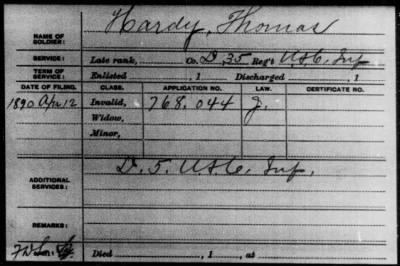 NAME OF SOLDIER: Hardy, Thomas
SERVICE: Late rank, Co. D, 35 Reg't U.S.C. Inf
TERM OF SERVICE: Enlisted , 1 Discharged , 1
DATE OF FILING. CLASS. APPLICATION NO. LAW. CERTIFICATE NO.
1890 Apr 12 Invalid, 768.044 J.
Widow,
Minor,
ADDITIONAL SERVICES: D. 5. U.S.C. Inf.
REMARKS:
Died , 1 , at